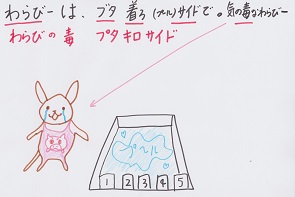 わらびーは、ブタ着ろ(プール)サイドで。気の毒なわらびー
わらびの毒 プタキロサイド
プール
1 2 3 4 5